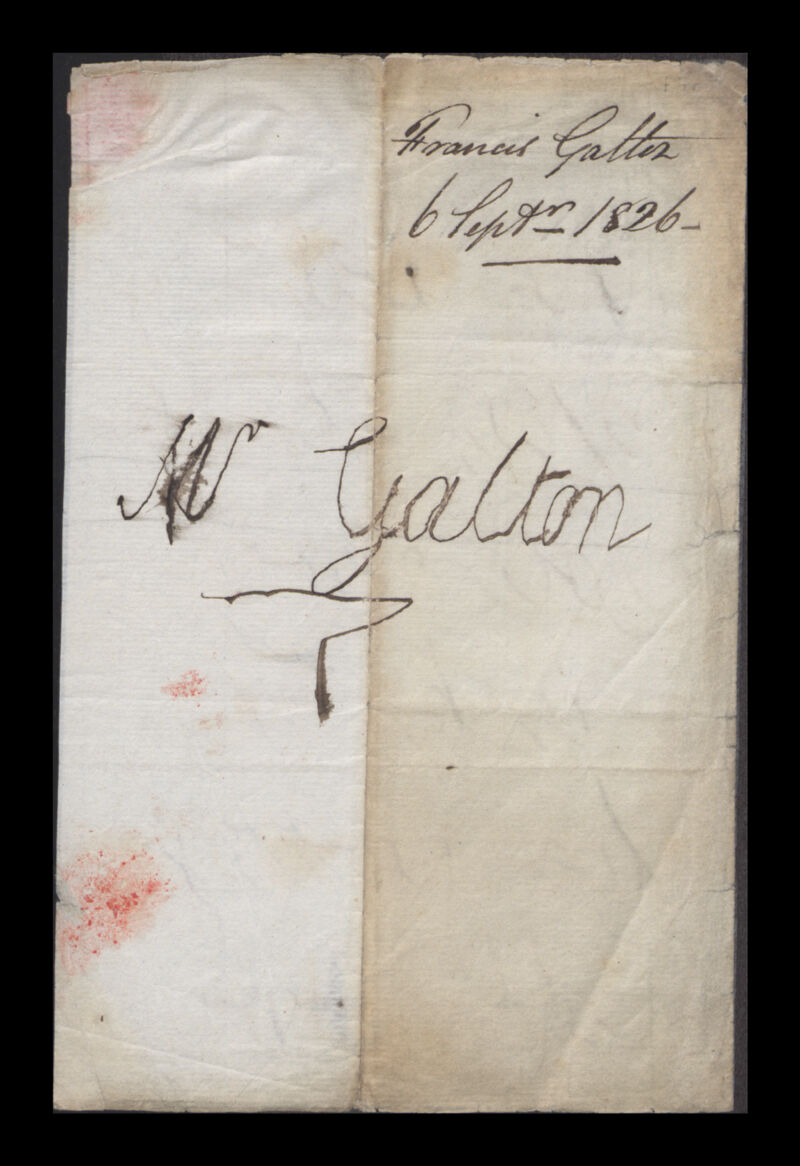 Francis Galton
6 Septr 1826-
Mr Galton